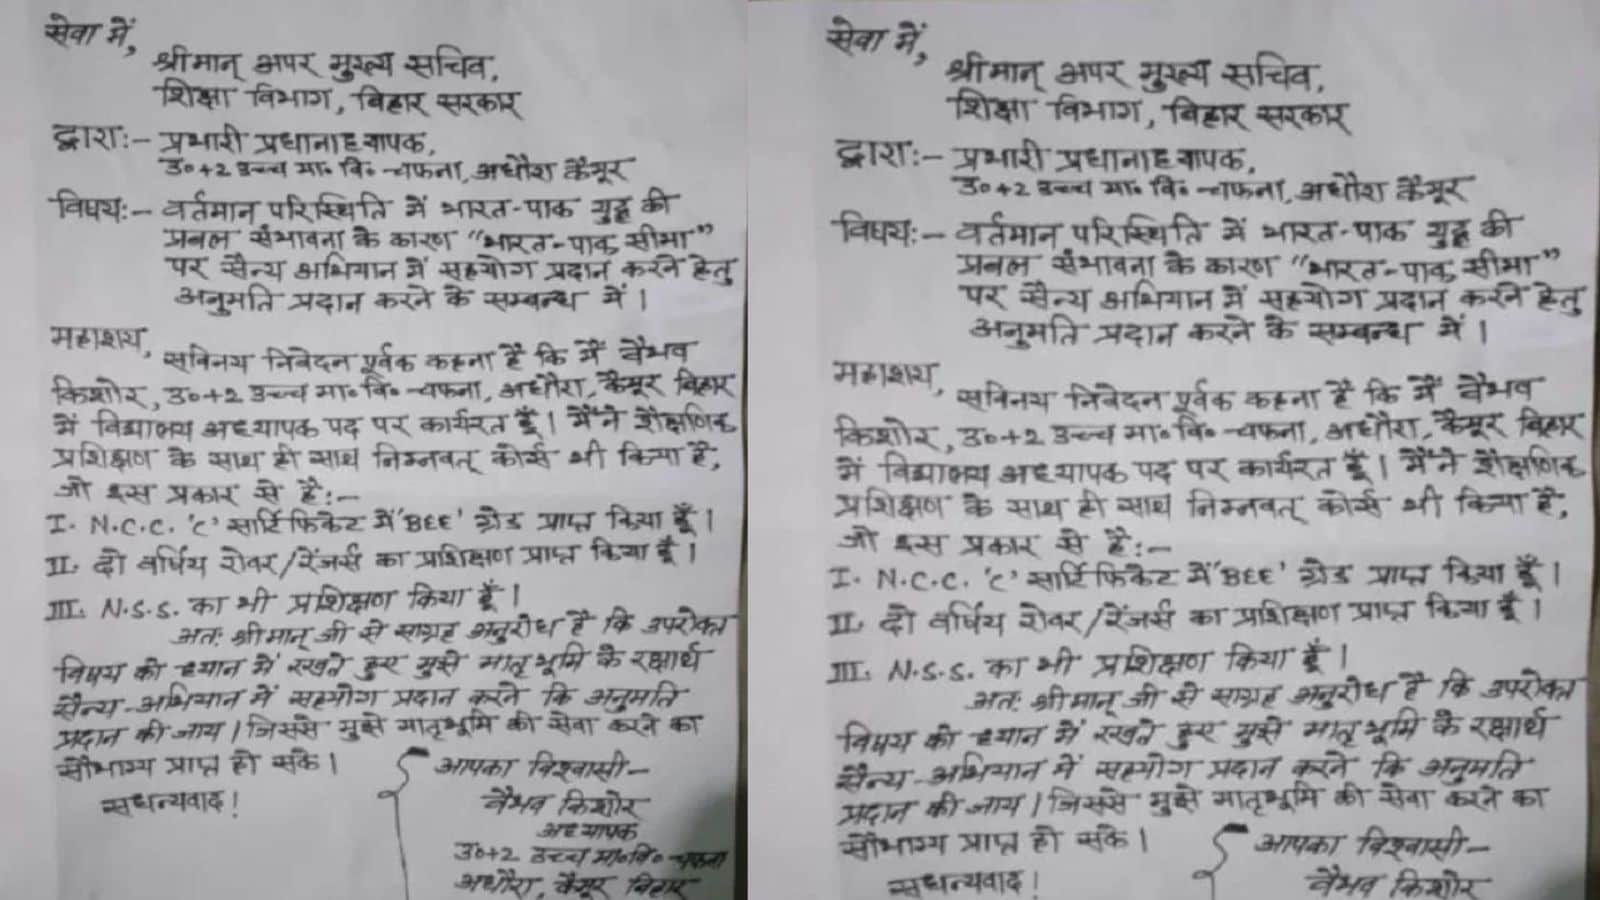 सेवा में,
श्रीमान् अपर मुख्य सचिव,
शिक्षा विभाग, बिहार सरकार
द्वारा:- प्रभारी प्रधानाध्यापक,
उ०+2 उच्च मा० वि० चफना, अधौरा कैमूर
विषय:- वर्तमान परिस्थिति में भारत-पाक युद्ध की
प्रबल संभावना के कारण "भारत-पाक सीमा"
पर सैन्य अभियान में सहयोग प्रदान करने हेतु
अनुमति प्रदान करने के सम्बन्ध में।
महाशय,
सविनय निवेदन पूर्वक कहना है कि मैं वैभव
किशोर, उ०+2 उच्च मा० वि० चफना, अधौरा, कैमूर बिहार
में विद्यालय अध्यापक पद पर कार्यरत हूँ। मैंने शैक्षणिक
प्रशिक्षण के साथ ही साथ निम्नवत् कोर्स भी किया है,
जो इस प्रकार से है:-
I. N.C.C. 'C' सार्टिफिकेट में 'BEE' ग्रेड प्राप्त किया हूँ।
II. दो वर्षिय रोवर/रेंजर्स का प्रशिक्षण प्राप्त किया हूँ।
III. N.S.S. का भी प्रशिक्षण किया हूँ।
अत: श्रीमान् जी से साग्रह अनुरोध है कि उपरोक्त
विषय को ध्यान में रखते हुए मुझे मातृभूमि के रक्षार्थ
सैन्य-अभियान में सहयोग प्रदान करने कि अनुमति
प्रदान की जाय। जिससे मुझे मातृभूमि की सेवा करने का
सौभाग्य प्राप्त हो सके।
सधन्यवाद!
आपका विश्वासी-
वैभव किशोर
अध्यापक
उ०+2 उच्च मा० वि० चफना
अधौरा, कैमूर बिहार
सेवा में,
श्रीमान् अपर मुख्य सचिव,
शिक्षा विभाग, बिहार सरकार
द्वारा:- प्रभारी प्रधानाध्यापक,
उ०+2 उच्च मा० वि० चफना, अधौरा कैमूर
विषय:- वर्तमान परिस्थिति में भारत-पाक युद्ध की
प्रबल संभावना के कारण "भारत-पाक सीमा"
पर सैन्य अभियान में सहयोग प्रदान करने हेतु
अनुमति प्रदान करने के सम्बन्ध में।
महाशय,
सविनय निवेदन पूर्वक कहना है कि मैं वैभव
किशोर, उ०+2 उच्च मा० वि० चफना, अधौरा, कैमूर बिहार
में विद्यालय अध्यापक पद पर कार्यरत हूँ। मैंने शैक्षणिक
प्रशिक्षण के साथ ही साथ निम्नवत् कोर्स भी किया है,
जो इस प्रकार से है:-
I. N.C.C. 'C' सार्टिफिकेट में 'BEE' ग्रेड प्राप्त किया हूँ।
II. दो वर्षिय रोवर/रेंजर्स का प्रशिक्षण प्राप्त किया हूँ।
III. N.S.S. का भी प्रशिक्षण किया हूँ।
अत: श्रीमान् जी से साग्रह अनुरोध है कि उपरोक्त
विषय को ध्यान में रखते हुए मुझे मातृभूमि के रक्षार्थ
सैन्य-अभियान में सहयोग प्रदान करने कि अनुमति
प्रदान की जाय। जिससे मुझे मातृभूमि की सेवा करने का
सौभाग्य प्राप्त हो सके।
सधन्यवाद!
आपका विश्वासी-
वैभव किशोर